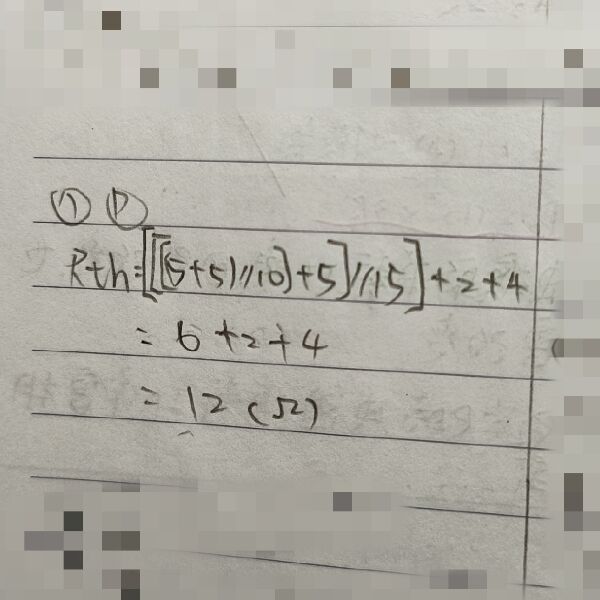 ① Ⓟ
Rth=[[[(5+5)//10]+5]//15]+2+4
= 6+2+4
= 12 (Ω)